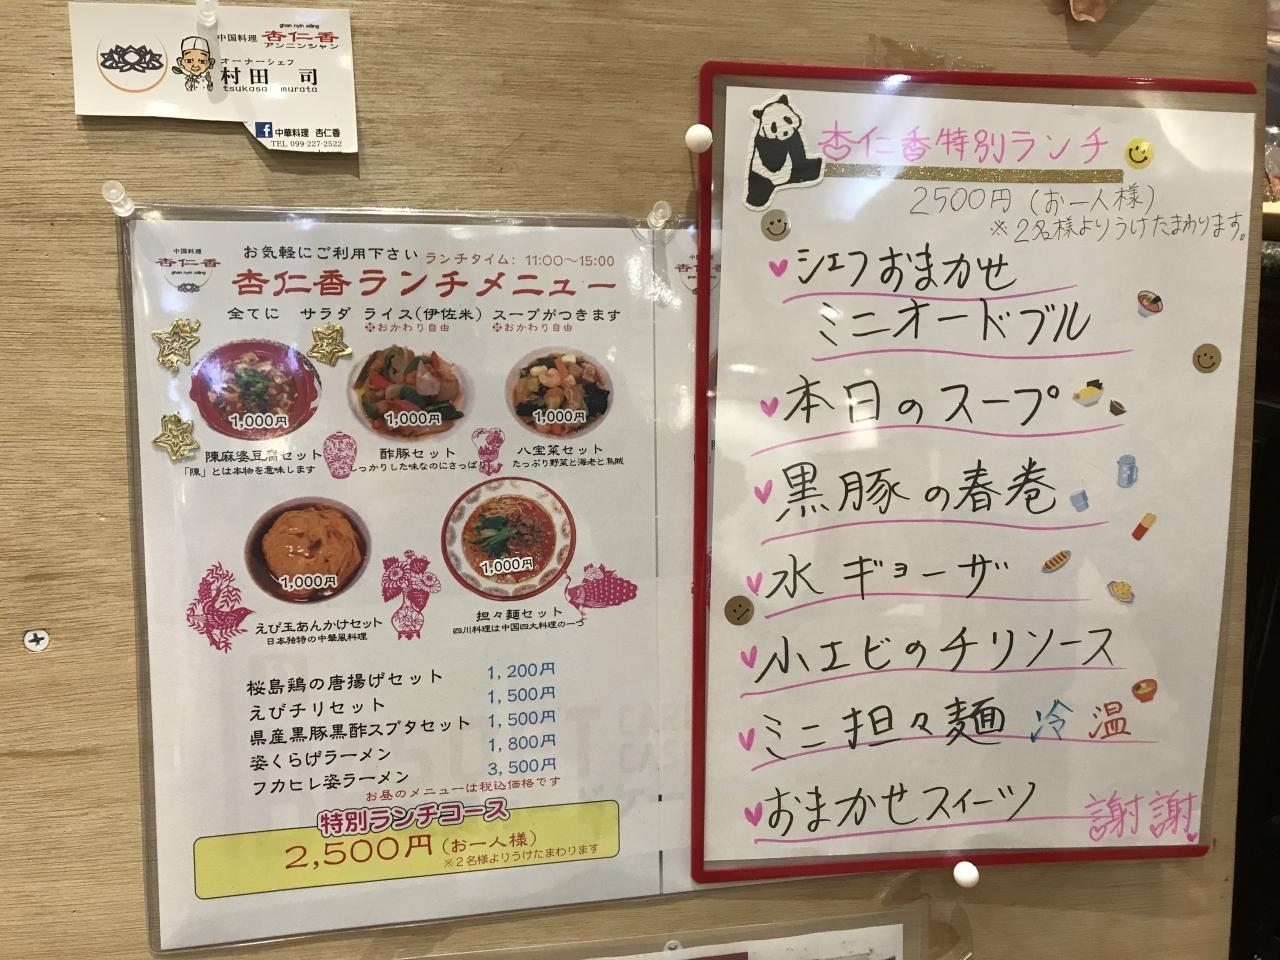 ghan nyin xiang
中国料理 杏仁香
アンニンシャン
オーナーシェフ
村田 司
tsukasa murata
中華料理 杏仁香
TEL 099-227-2522
中国料理
杏仁香
ghan nyin xiang
お気軽にご利用下さい ランチタイム: 11:00〜15:00
杏仁香ランチメニュー
全てに サラダ ライス(伊佐米) スープがつきます
※おかわり自由 ※おかわり自由
1,000円 1,000円 1,000円
陳麻婆豆腐セット 酢豚セット 八宝菜セット
「陳」とは本物を意味します しっかりした味なのにさっぱり たっぷり野菜と海老と烏賊
1,000円 1,000円
えび玉あんかけセット 担々麺セット
日本独特の中華風料理 四川料理は中国四大料理の一つ
桜島鶏の唐揚げセット 1,200円
えびチリセット 1,500円
県産黒豚黒酢スブタセット 1,500円
姿くらげラーメン 1,800円
フカヒレ姿ラーメン 3,500円
お昼のメニューは税込価格です
特別ランチコース
2,500円(お一人様)
※2名様よりうけたまわります
杏仁香特別ランチ
2500円(お一人様)
※2名様よりうけたまわります。
シェフおまかせ
ミニオードブル
本日のスープ
黒豚の春巻
水ギョーザ
小エビのチリソース
ミニ担々麺 冷 温
おまかせスイーツ
謝謝